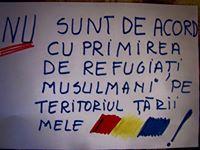 NU SUNT DE ACORD
CU PRIMIREA
DE REFUGIAȚI
MUSULMANI PE
TERITORIUL ȚĂRII
MELE !